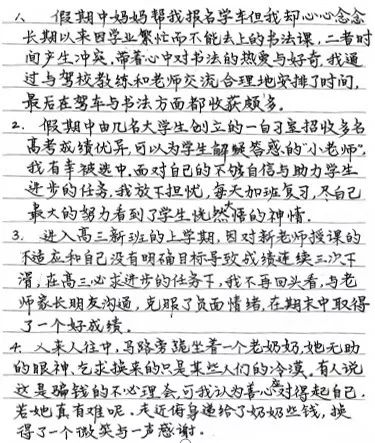 1、假期中妈妈帮我报名学车但我却心心念念
长期以来因学业繁忙而不能去上的书法课,二者时
间产生冲突,带着心中对书法的热爱与好奇,我通
过与驾校教练和老师交流合理地安排了时间,
最后在驾车与书法方面都收获颇多。
2. 假期中由几名大学生创立的一自习室招收多名
高考成绩优异,可以为学生解疑答惑的“小老师”,
我有幸被选中,面对自己的不够自信与助力学生
进步的任务,我放下担忧,每天加班复习,尽自己
最大的努力看到了学生恍然大悟的神情.
3. 进入高三新班的上学期,因对新老师授课的
不适应和自己没有明确目标导致成绩连续三次下
滑,在高三必求进步的任务下,我不再回头看,与老
师家长朋友沟通,克服了负面情绪,在期末中取得
了一个好成绩。
4. 人来人往中,马路旁跪坐着一个老奶奶,她无助
的眼神,乞求换来的只是某些人们的冷漠,有人说
这是骗钱的不必理会,可我认为善心应对得起自己.
若她真有难呢.走近俯身递给了奶奶些钱,换
得了一个微笑与一声感谢.